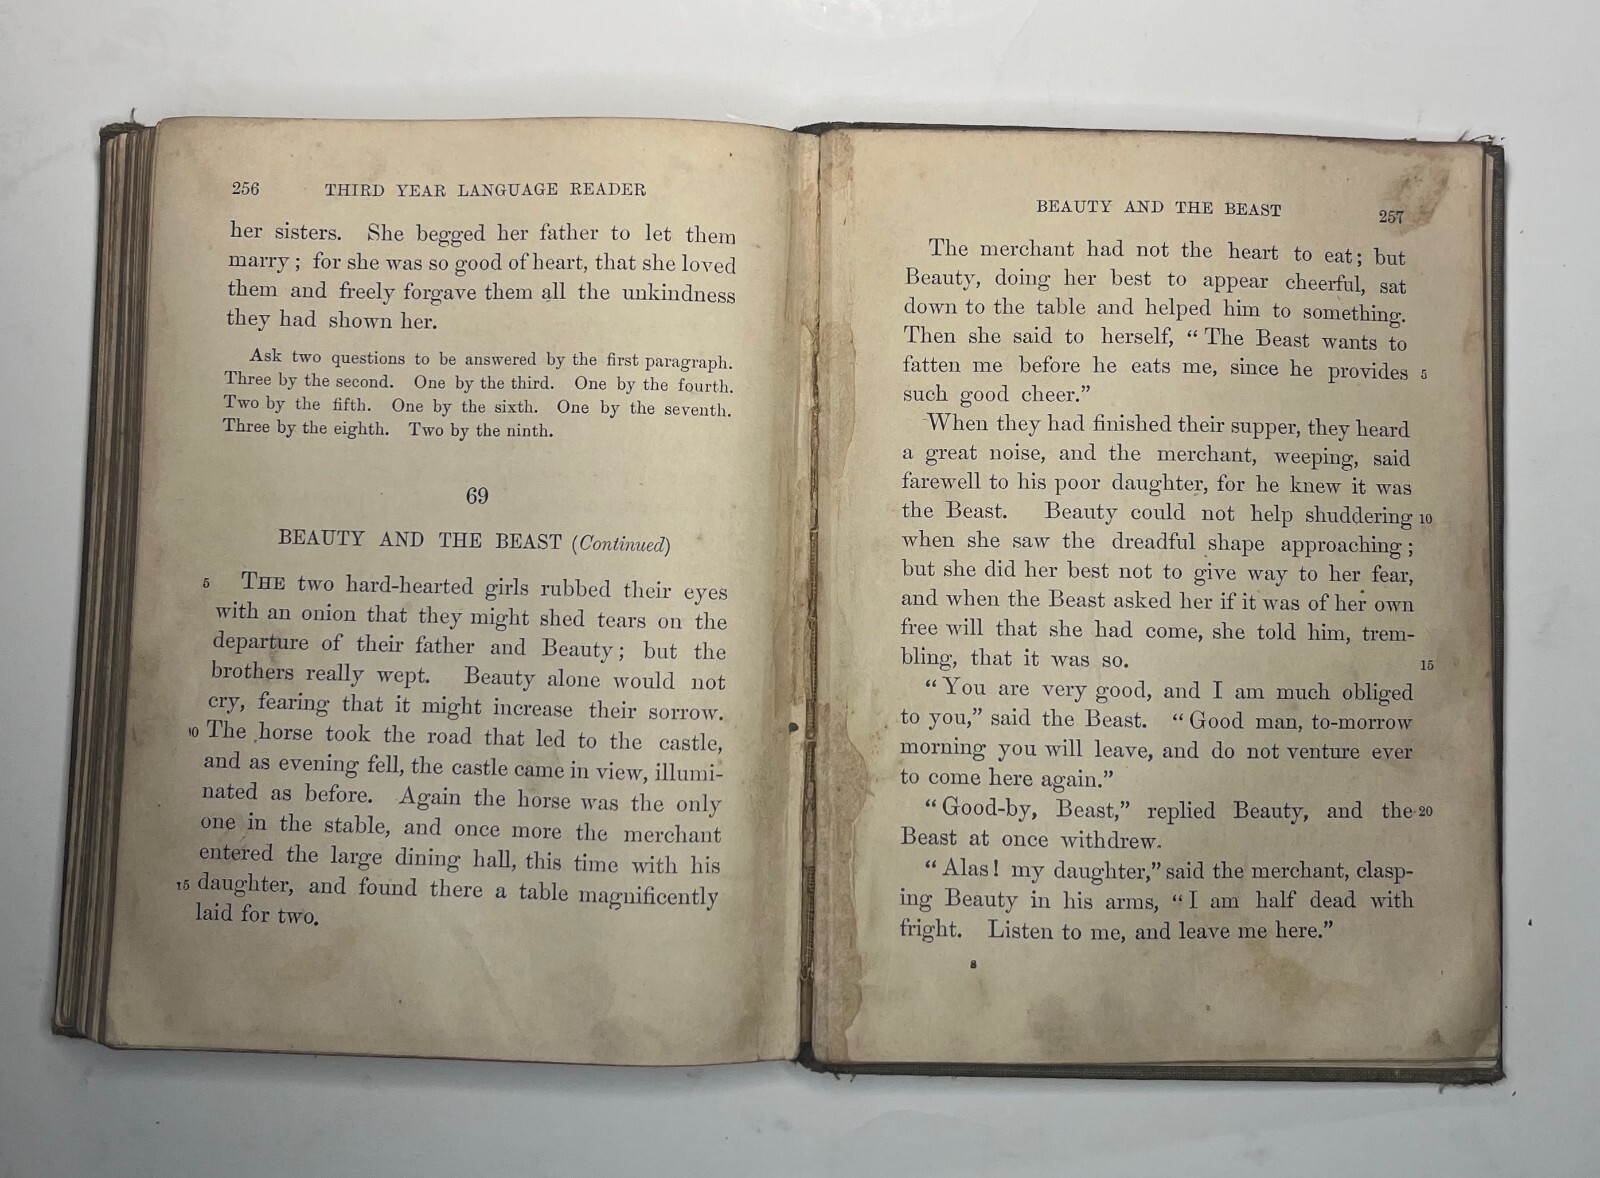 256 THIRD YEAR LANGUAGE READER
her sisters. She begged her father to let them
marry; for she was so good of heart, that she loved
them and freely forgave them all the unkindness
they had shown her.
Ask two questions to be answered by the first paragraph.
Three by the second. One by the third. One by the fourth.
Two by the fifth. One by the sixth. One by the seventh.
Three by the eighth. Two by the ninth.
69
BEAUTY AND THE BEAST (Continued)
5 THE two hard-hearted girls rubbed their eyes
with an onion that they might shed tears on the
departure of their father and Beauty; but the
brothers really wept. Beauty alone would not
cry, fearing that it might increase their sorrow.
10 The horse took the road that led to the castle,
and as evening fell, the castle came in view, illumi-
nated as before. Again the horse was the only
one in the stable, and once more the merchant
entered the large dining hall, this time with his
15 daughter, and found there a table magnificently
laid for two.
BEAUTY AND THE BEAST 257
The merchant had not the heart to eat; but
Beauty, doing her best to appear cheerful, sat
down to the table and helped him to something.
Then she said to herself, "The Beast wants to
fatten me before he eats me, since he provides 5
such good cheer."
When they had finished their supper, they heard
a great noise, and the merchant, weeping, said
farewell to his poor daughter, for he knew it was
the Beast. Beauty could not help shuddering 10
when she saw the dreadful shape approaching;
but she did her best not to give way to her fear,
and when the Beast asked her if it was of her own
free will that she had come, she told him, trem-
bling, that it was so. 15
"You are very good, and I am much obliged
to you," said the Beast. "Good man, to-morrow
morning you will leave, and do not venture ever
to come here again."
"Good-by, Beast," replied Beauty, and the 20
Beast at once withdrew.
"Alas! my daughter," said the merchant, clasp-
ing Beauty in his arms, "I am half dead with
fright. Listen to me, and leave me here."
8